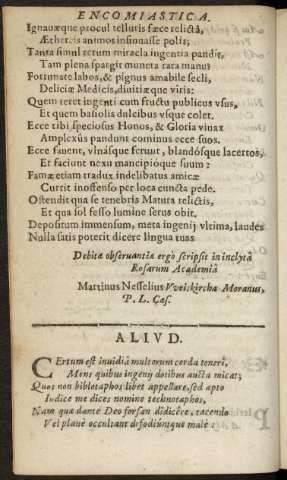 ENCOMIASTICA.
Ignauæque procul telluris fæce relictâ,
Æthereis animos insinuasse polis;
Tanta simul rerum miracla ingentia pandit,
Tam plena spargit munera rara manu:
Fortunate labos, & pignus amabile secli,
Deliciæ Medicis, diuitiæque viris:
Quem teret ingenti cum fructu publicus vsus,
Et quem basiolis dulcibus vsque colet.
Ecce tibi speciosus Honos, & Gloria viuax
Amplexûs pandunt cominus ecce suos.
Ecce fauent, vlnásque ferunt, blandósque lacertos,
Et faciunt nexu mancipióque suum:
Famæ etiam tradux indelibatus amicæ
Currit inoffenso per loca cuncta pede.
Ostendit qua se tenebris Matura relictis,
Et qua sol fesso lumine serus obit.
Depositum immensum, meta ingenij vltima, laudes
Nulla satis poterit dicere lingua tuas
Debitæ obseruantiæ ergò scripsit in inclytâ
Rosarum Academiâ
Martinus Nesselius Moranus,
P. L. Cæs.
ALIVD.
CErtum est inuidiâ multorum corda teneri,
Mens quibus ingenij dotibus aucta micat;
Quos non bibliotaphos libet appellare, sed apto
Iudice me dices nomine technotaphos,
Nam quæ dante Deo forsan didicêre, tacendo
Vel planè occultant difodiúntque malè: